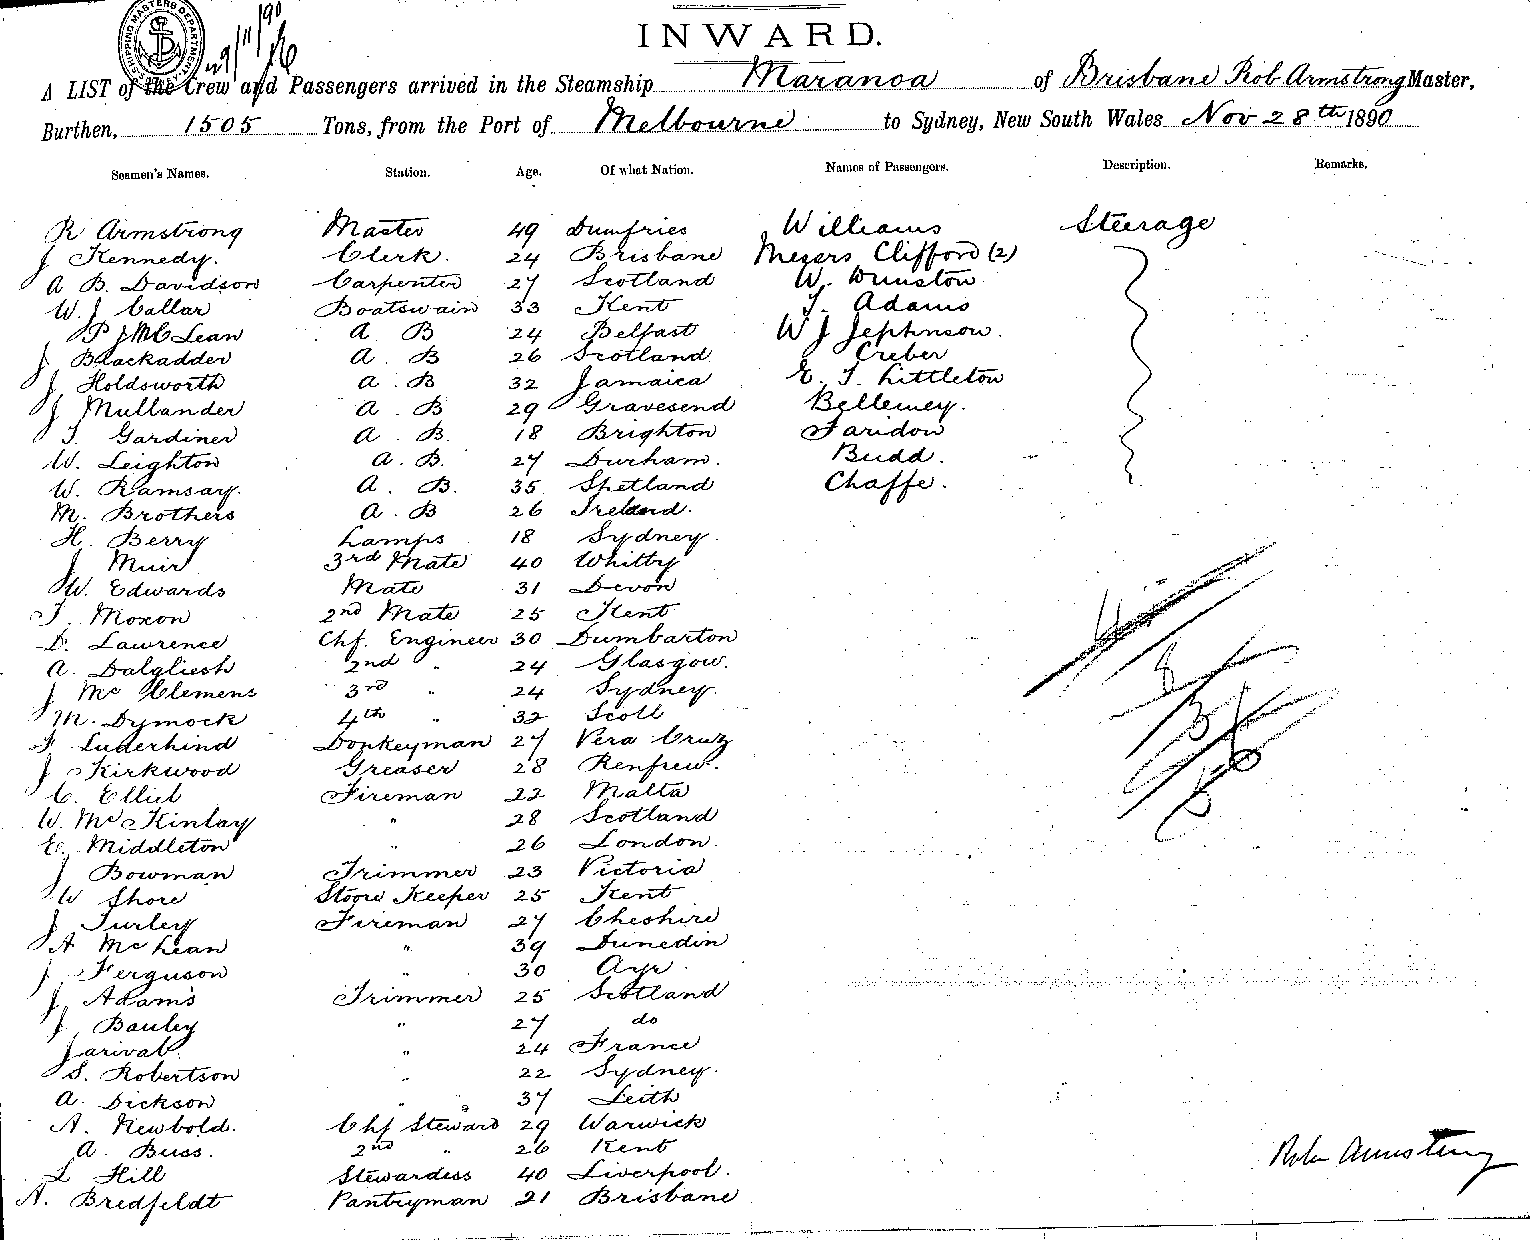 SHIPPING MASTERS DEPARTMENT
29/11/90
INWARD.
A LIST of the Crew and Passengers arrived in the Steamship Maranoa of Brisbane Rob Armstrong Master,
Burthen, 1505 Tons, from the Port of Melbourne to Sydney, New South Wales Nov 28th 1890
Seamen's Names. Station. Age. Of what Nation. Names of Passengers. Description. Remarks.
R Armstrong Master 49 Dumfries Williams Steerage
J Kennedy. Clerk. 24 Brisbane Messrs Clifford (2)
A B. Davidson Carpenter 27 Scotland W. Dunston
W. J Callar Boatswain 33 Kent T. Adams
P J McLean A B 24 Belfast W J Jephnson.
J Blackadder A. B 26 Scotland Creber
J Holdsworth A. B 32 Jamaica E. T. Littleton
J Mullander A. B 29 Gravesend Bellemey.
T. Gardiner A. B. 18 Brighton Faridon
W. Leighton A. B. 27 Durham. Budd.
W. Ramsay. A. B. 35 Shetland Chaffe.
M. Brothers A. B 26 Ireland.
H. Berry Lamps 18 Sydney.
J Muir 3rd Mate 40 Whitby
W. Edwards Mate 31 Devon
T. Moxon 2nd Mate 25 Kent
D. Lawrence Chf. Engineer 30 Dumbarton
A. Dalgliesh 2nd " 24 Glasgow.
J Mc Clemens 3rd " 24 Sydney.
M. Dymock 4th " 32 Scotl
F Luderhind Donkeyman 27 Vera Cruz
J Kirkwood Greaser 28 Renfrew.
C. Elliet Fireman 22 Malta
W. McKinlay " 28 Scotland
E. Middleton " 26 London.
J Bowman Trimmer 23 Victoria
W Shore Store Keeper 25 Kent
J Turley Fireman 27 Cheshire
A McLean " 39 Dunedin
J Ferguson " 30 Ayr.
J Adams Trimmer 25 Scotland
J Bauley " 27 do
Jarival. " 24 France
S. Robertson " 22 Sydney.
A. Dickson " 37 Leith
A. Newbold. Chf Steward 29 Warwick
A. Buss. 2nd " 26 Kent
L Hill Stewardess 40 Liverpool.
A. Bredfeldt Pantryman 21 Brisbane
Robr Armstrong